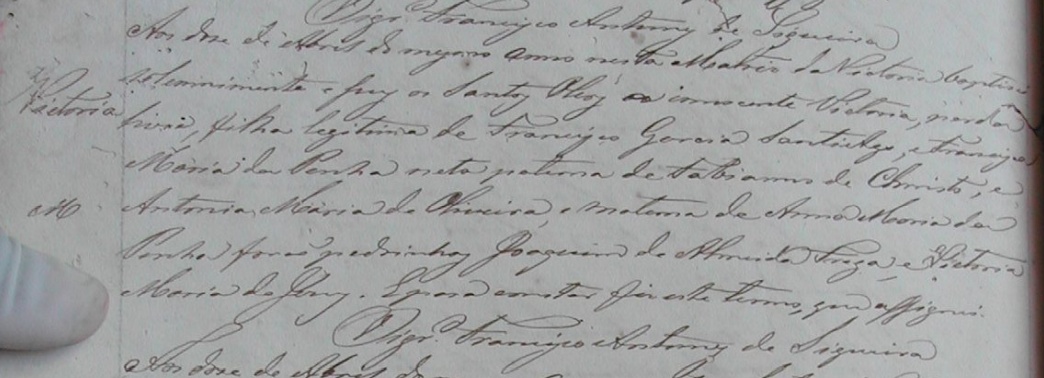 Vigr.º Francisco Antonio de Siqueira
Aos doze de Abril do mesmo anno nesta Matriz da Victoria baptisei
Victoria
solemnimente e puz os Santos Oleos a innocente Victoria, parda
livre, filha legitima de Francisco Garcia Santiago, e Francisca
Maria da Penha neta paterna de Fabianno de Christo, e
M
Antonia Maria de Oliveira, e materna de Anna Maria da
Penha forão padrinhos Joaquim de Almeida Fraga, e Victoria
Maria de Jesus. E para constar fiz este termo, que assignei.
Vigr.º Francisco Antonio de Siqueira
Aos doze de Abril do